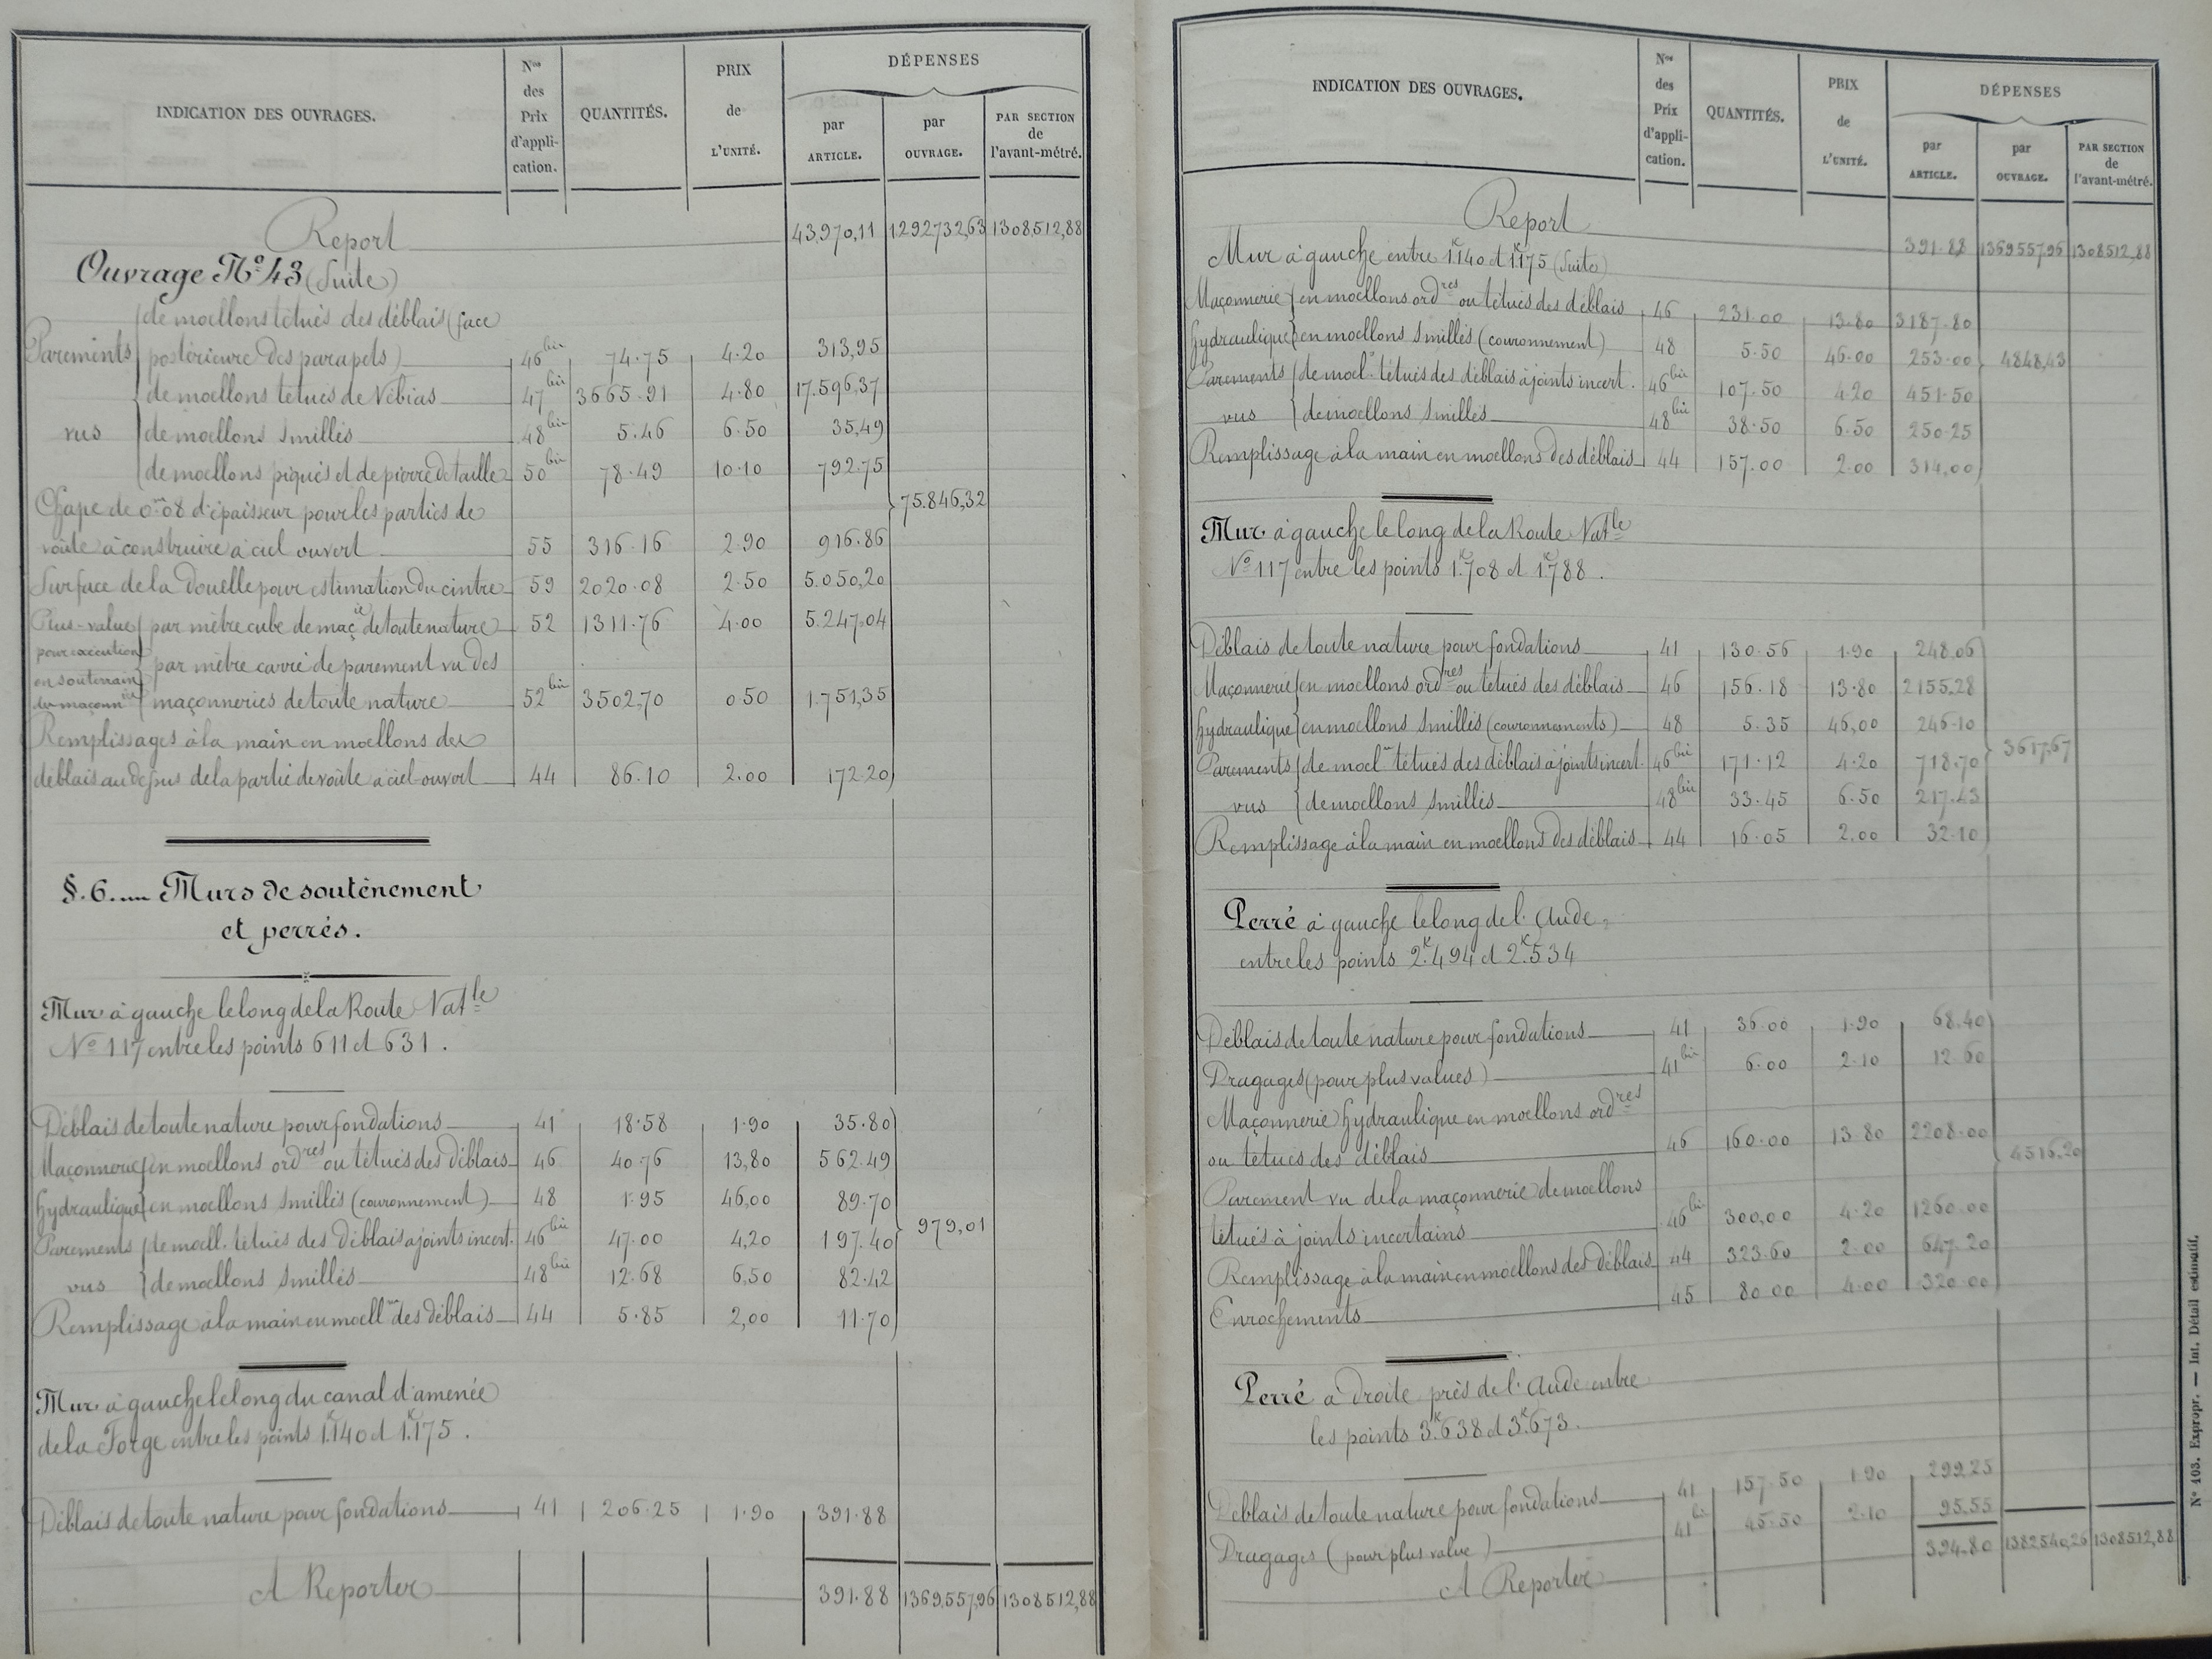 INDICATION DES OUVRAGES.
Nos des Prix d'appli-cation.
QUANTITÉS.
PRIX de L'UNITÉ.
DÉPENSES
par ARTICLE.
par OUVRAGE.
PAR SECTION de l'avant-métré.
Report 43.970,11 1292732,63 1308512,88
Ouvrage No 43 (Suite)
de moellons têtués des déblais (face
Parements postérieure des parapets) 46 bis 74.75 4.20 313,95
de moellons têtués de Nébias 47 bis 3665.91 4.80 17.596,37
vus de moellons smillés 48 bis 5.46 6.50 35,49
de moellons piqués et de pierre de taille 50 bis 78.49 10.10 792.75
Chape de 0m08 d'épaisseur pour les parties de 75.846,32
voûte à construire à ciel ouvert 55 316.16 2.90 916.86
Surface de la douelle pour estimation du cintre 59 2020.08 2.50 5.050,20
Plus-value par mètre cube de maçie de toute nature 52 1311.76 4.00 5.247.04
pour exécution par mètre carré de parement vu des
en souterrain
des maçonnies maçonneries de toute nature 52 bis 3502,70 0.50 1.751,35
Remplissages à la main en moellons des
déblais au dessus de la partie de voûte à ciel-ouvert 44 86.10 2.00 172.20
§.6. Murs de soutènement
et perrés.
Mur à gauche le long de la Route Natle
No 117 entre les points 611 et 631.
Déblais de toute nature pour fondations 41 18.58 1.90 35.80
Maçonnerie en moellons ordres ou têtués des déblais 46 40.76 13,80 562.49
hydraulique en moellons smillés (couronnement) 48 1.95 46,00 89.70
Parements de moell. têtués des déblais à joints incert. 46 bis 47.00 4,20 197.40 979,01
vus de moellons smillés 48 bis 12.68 6,50 82.42
Remplissage à la main en moellns des déblais 44 5.85 2,00 11.70
Mur à gauche le long du canal d'amenée
de la Forge entre les points 1K.140 et 1K.175.
Déblais de toute nature pour fondations 41 206.25 1.90 391.88
A Reporter 391.88 1369557,96 1308512,88
INDICATION DES OUVRAGES.
Nos des Prix d'appli-cation.
QUANTITÉS.
PRIX de L'UNITÉ.
DÉPENSES
par ARTICLE.
par OUVRAGE.
PAR SECTION de l'avant-métré.
Report 391.88 1369557,96 1308512,88
Mur à gauche entre 1K140 et 1K175 (Suite)
Maçonnerie en moellons ordres ou têtués des déblais 46 231.00 13.80 3187.80
hydraulique en moellons smillés (couronnement) 48 5.50 46.00 253.00 4848,43
Parements de moel.s têtués des déblais à joints incert. 46 bis 107.50 4.20 451.50
vus de moellons smillés 48 bis 38.50 6.50 250.25
Remplissage à la main en moellons des déblais 44 157.00 2.00 314,00
Mur à gauche le long de la Route Natle
No 117 entre les points 1K.708 et 1K.788.
Déblais de toute nature pour fondations 41 130.56 1.90 248.06
Maçonnerie en moellons ordres ou têtués des déblais 46 156.18 13.80 2155.28
hydraulique en moellons smillés (couronnements) 48 5.35 46,00 246.10
Parements de moelns têtués des déblais à joints incert. 46 bis 171.12 4.20 718.70 3617,67
vus de moellons smillés 48 bis 33.45 6.50 217.43
Remplissage à la main en moellons des déblais 44 16.05 2.00 32.10
Perré à gauche le long de l'Aude
entre les points 2K.494 et 2K.534
Déblais de toute nature pour fondations 41 36.00 1.90 68.40
Dragages (pour plus values) 41 bis 6.00 2.10 12.60
Maçonnerie hydraulique en moellons ordres
ou têtués des déblais 46 160.00 13.80 2208.00 4516,20
Parement vu de la maçonnerie de moellons
têtués à joints incertains 46 bis 300,00 4.20 1260.00
Remplissage à la main en moellons des déblais 44 323.60 2.00 647.20
Enrochements 45 80.00 4.00 320.00
Perré à droite près de l'Aude entre
les points 3K.638 et 3K.673.
Déblais de toute nature pour fondations 41 157.50 1.90 299,25
Dragages (pour plus value) 41 bis 45.50 2.10 95.55
A Reporter 394.80 1382540,26 1308512,88
No 103. Expropr. — Int. Détail estimatif.